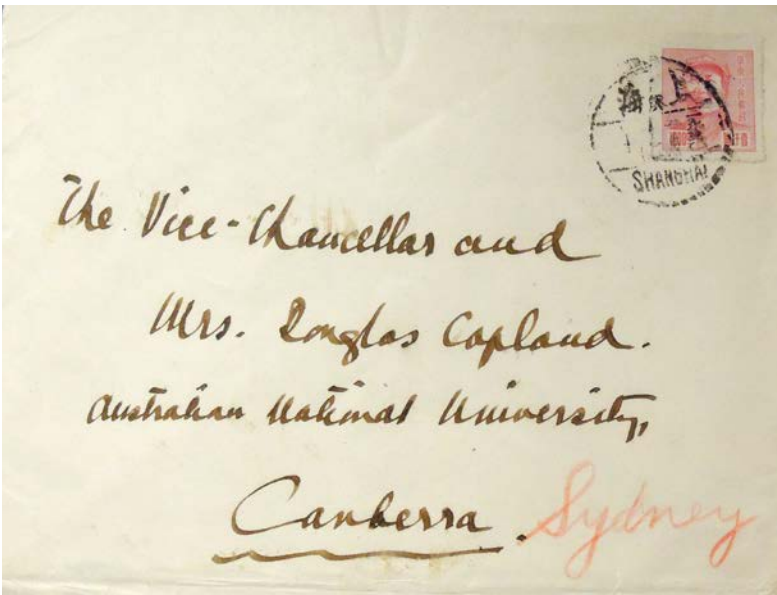 上海
SHANGHAI
The Vice-Chancellor and
Mrs. Douglas Copland.
Australian National University,
Canberra. Sydney